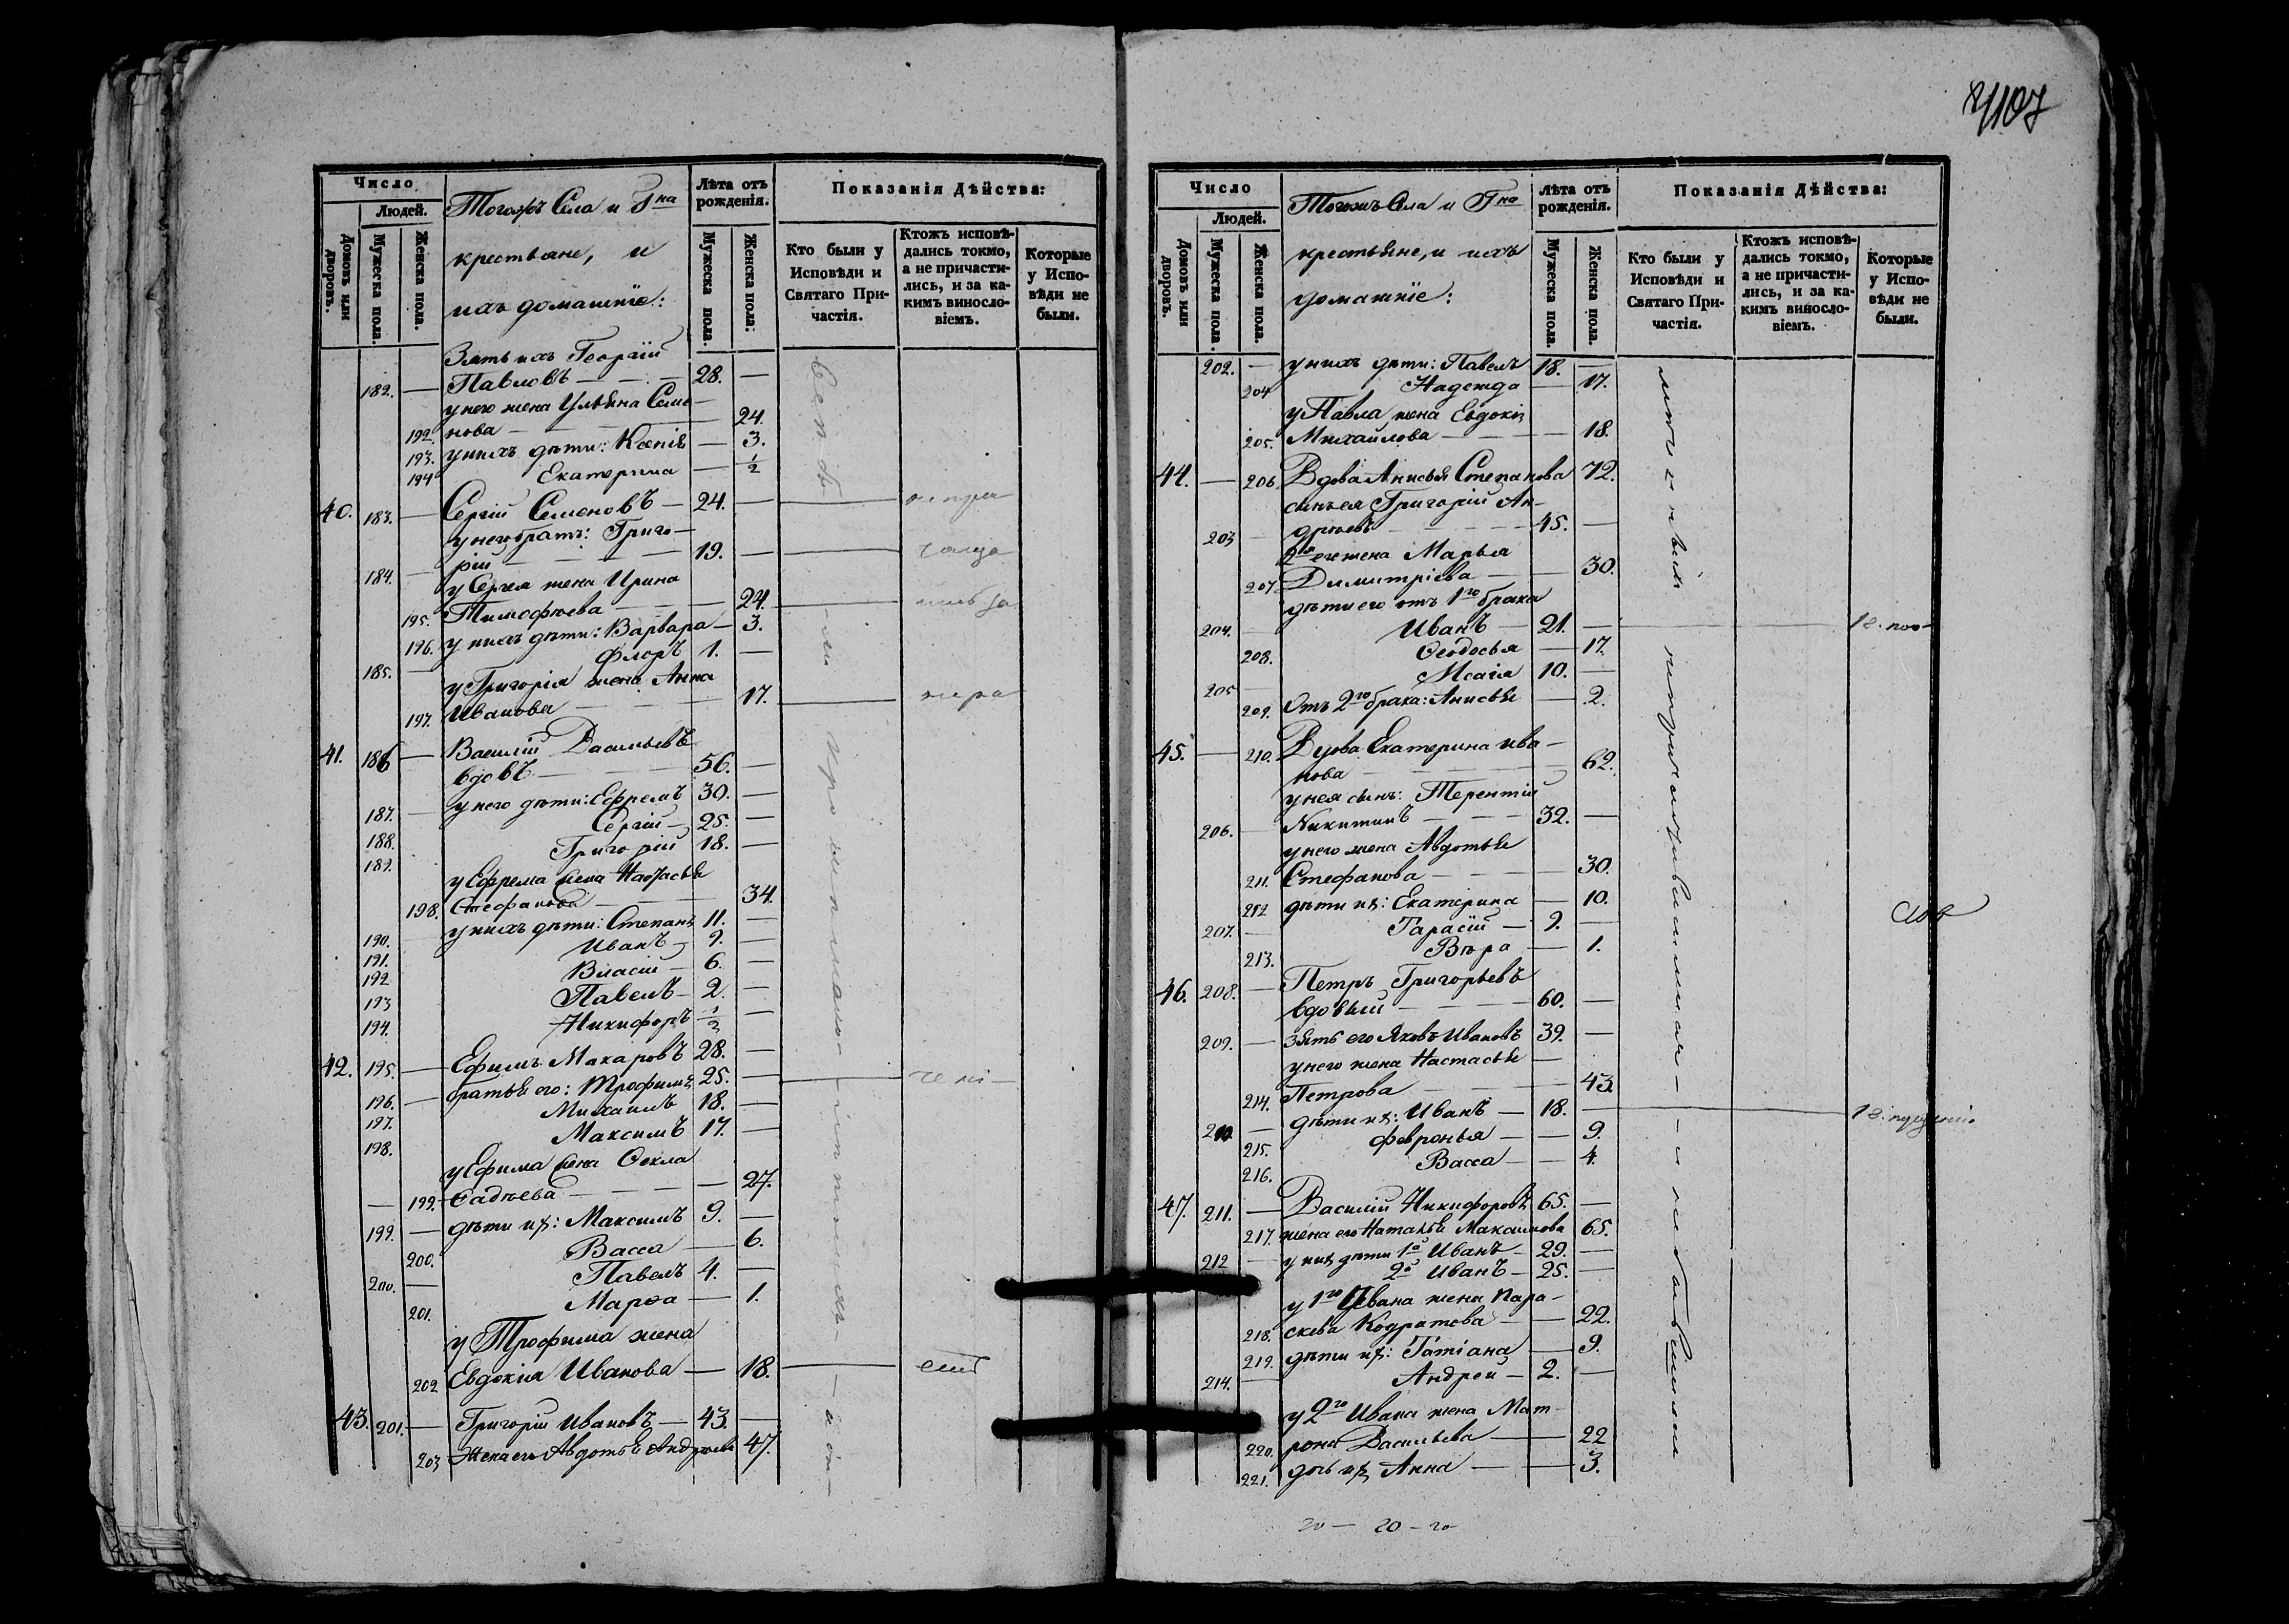 107
Число
Людей.
Домовъ или дворовъ.
Мужеска пола.
Женска пола.
Тогожъ Села и Гна
крестьяне, и
ихъ домашніе:
Лѣта отъ рожденія.
Мужеска пола.
Женска пола:
Показанія Дѣйства:
Кто были у
Исповѣди и
Святаго При-
частія.
Ктожъ исповѣ-
дались токмо,
а не причасти-
лись, и за ка-
кимъ виносло-
віемъ.
Которые
у Испо-
вѣди не
были.
Зять ихъ Георгій
182. — Павловъ — 28. —
у него жена Ульяна Семе-
192. нова — 24.
193. у нихъ дѣти: Ксенія — 3.
194 Екатерина — 1/2
40. 183. — Сергій Семеновъ — 24. —
у него братъ: Григо-
184. — рій — 19. —
у Сергея жена Ирина
195. Тимофѣева — 24.
196. у нихъ дѣти: Варвара — 3.
185. — Флоръ 1. —
у Григорія жена Анна
197. Иванова — 17.
41. 186 — Василій Васильевъ
вдовъ — 56. —
187. — у него дѣти: Ефремъ 30. —
188. Сергій — 25. —
189. Григорій 18. —
у Ефрема жена Настасья
198. Стефанова — 34.
190. у нихъ дѣти: Степанъ 11. —
191. Иванъ — 9. —
192 Власій — 6. —
193 Павелъ — 2. —
194. Никифоръ 1/2 —
42. 195. — Ефимъ Макаровъ 28. —
196. — братья его: Трофимъ 25. —
197. Михаилъ 18. —
198. Максимъ 17. —
у Ефима жена Ѳекла
— 199. Фадѣева — 27.
199. — дѣти их: Максимъ 9. —
200. Васса — 6.
200. — Павелъ 4. —
201. Марѳа — 1.
у Трофима жена
202 Евдокія Иванова — 18.
43. 201. — Григорій Ивановъ — 43. —
203 Жена его Авдотья Андреева 47.
Число
Людей.
Домовъ или дворовъ.
Мужеска пола.
Женска пола.
Тогожъ Села и Гна
крестьяне, и ихъ
домашніе:
Лѣта отъ рожденія.
Мужеска пола.
Женска пола.
Показанія Дѣйства:
Кто были у
Исповѣди и
Святаго При-
частія.
Ктожъ исповѣ-
дались токмо,
а не причасти-
лись, и за ка-
кимъ виносло-
віемъ.
Которые
у Испо-
вѣди не
были.
202. — у нихъ дѣти: Павелъ 18. —
204 Надежда — 17.
у Павла жена Евдокія
205. Михайлова — 18.
44. — 206 Вдова Анисья Степанова 72.
сынъ ея Григорій Ан-
203 — дреевъ — 45. —
2я его жена Марья
207 Димитріева — 30.
дѣти его отъ 1го брака
204. — Иванъ — 21. —
208. Ѳеодосья — 17.
205 — Исаія 10. —
209. Отъ 2го брака: Анисья — 2.
45. — 210. Вдова Екатерина Ива-
нова — 62.
у нея сынъ: Терентій
206. — Никитинъ — 32. —
у него жена Авдотья
211. Стефанова — 30.
212 дѣти их: Екатерина — 10.
207. — Тарасій — 9. —
213. Вѣра — 1.
46. 208. — Петръ Григорьевъ
вдовый — 60. —
209. — Зять его Яковъ Ивановъ 39. —
у него жена Настасья —
214. Петрова — 43.
210. — дѣти их: Иванъ — 18. —
215. Февронья — 9.
216. Васса — 4.
47. 211. — Василій Никифоровъ 65. —
217. жена его Наталья Максимова 65.
212 — у них дѣти 1й Иванъ — 29. —
2й Иванъ — 25. —
у 1го Ивана жена Пара-
218. скева Кодратова — 22.
219. дѣти их: Татіана — 9.
214. — Андрей — 2. —
у 2го Ивана жена Мат-
220. рона Васильева — 22
221. дочь их Анна — 3.
20 — 20 — 20